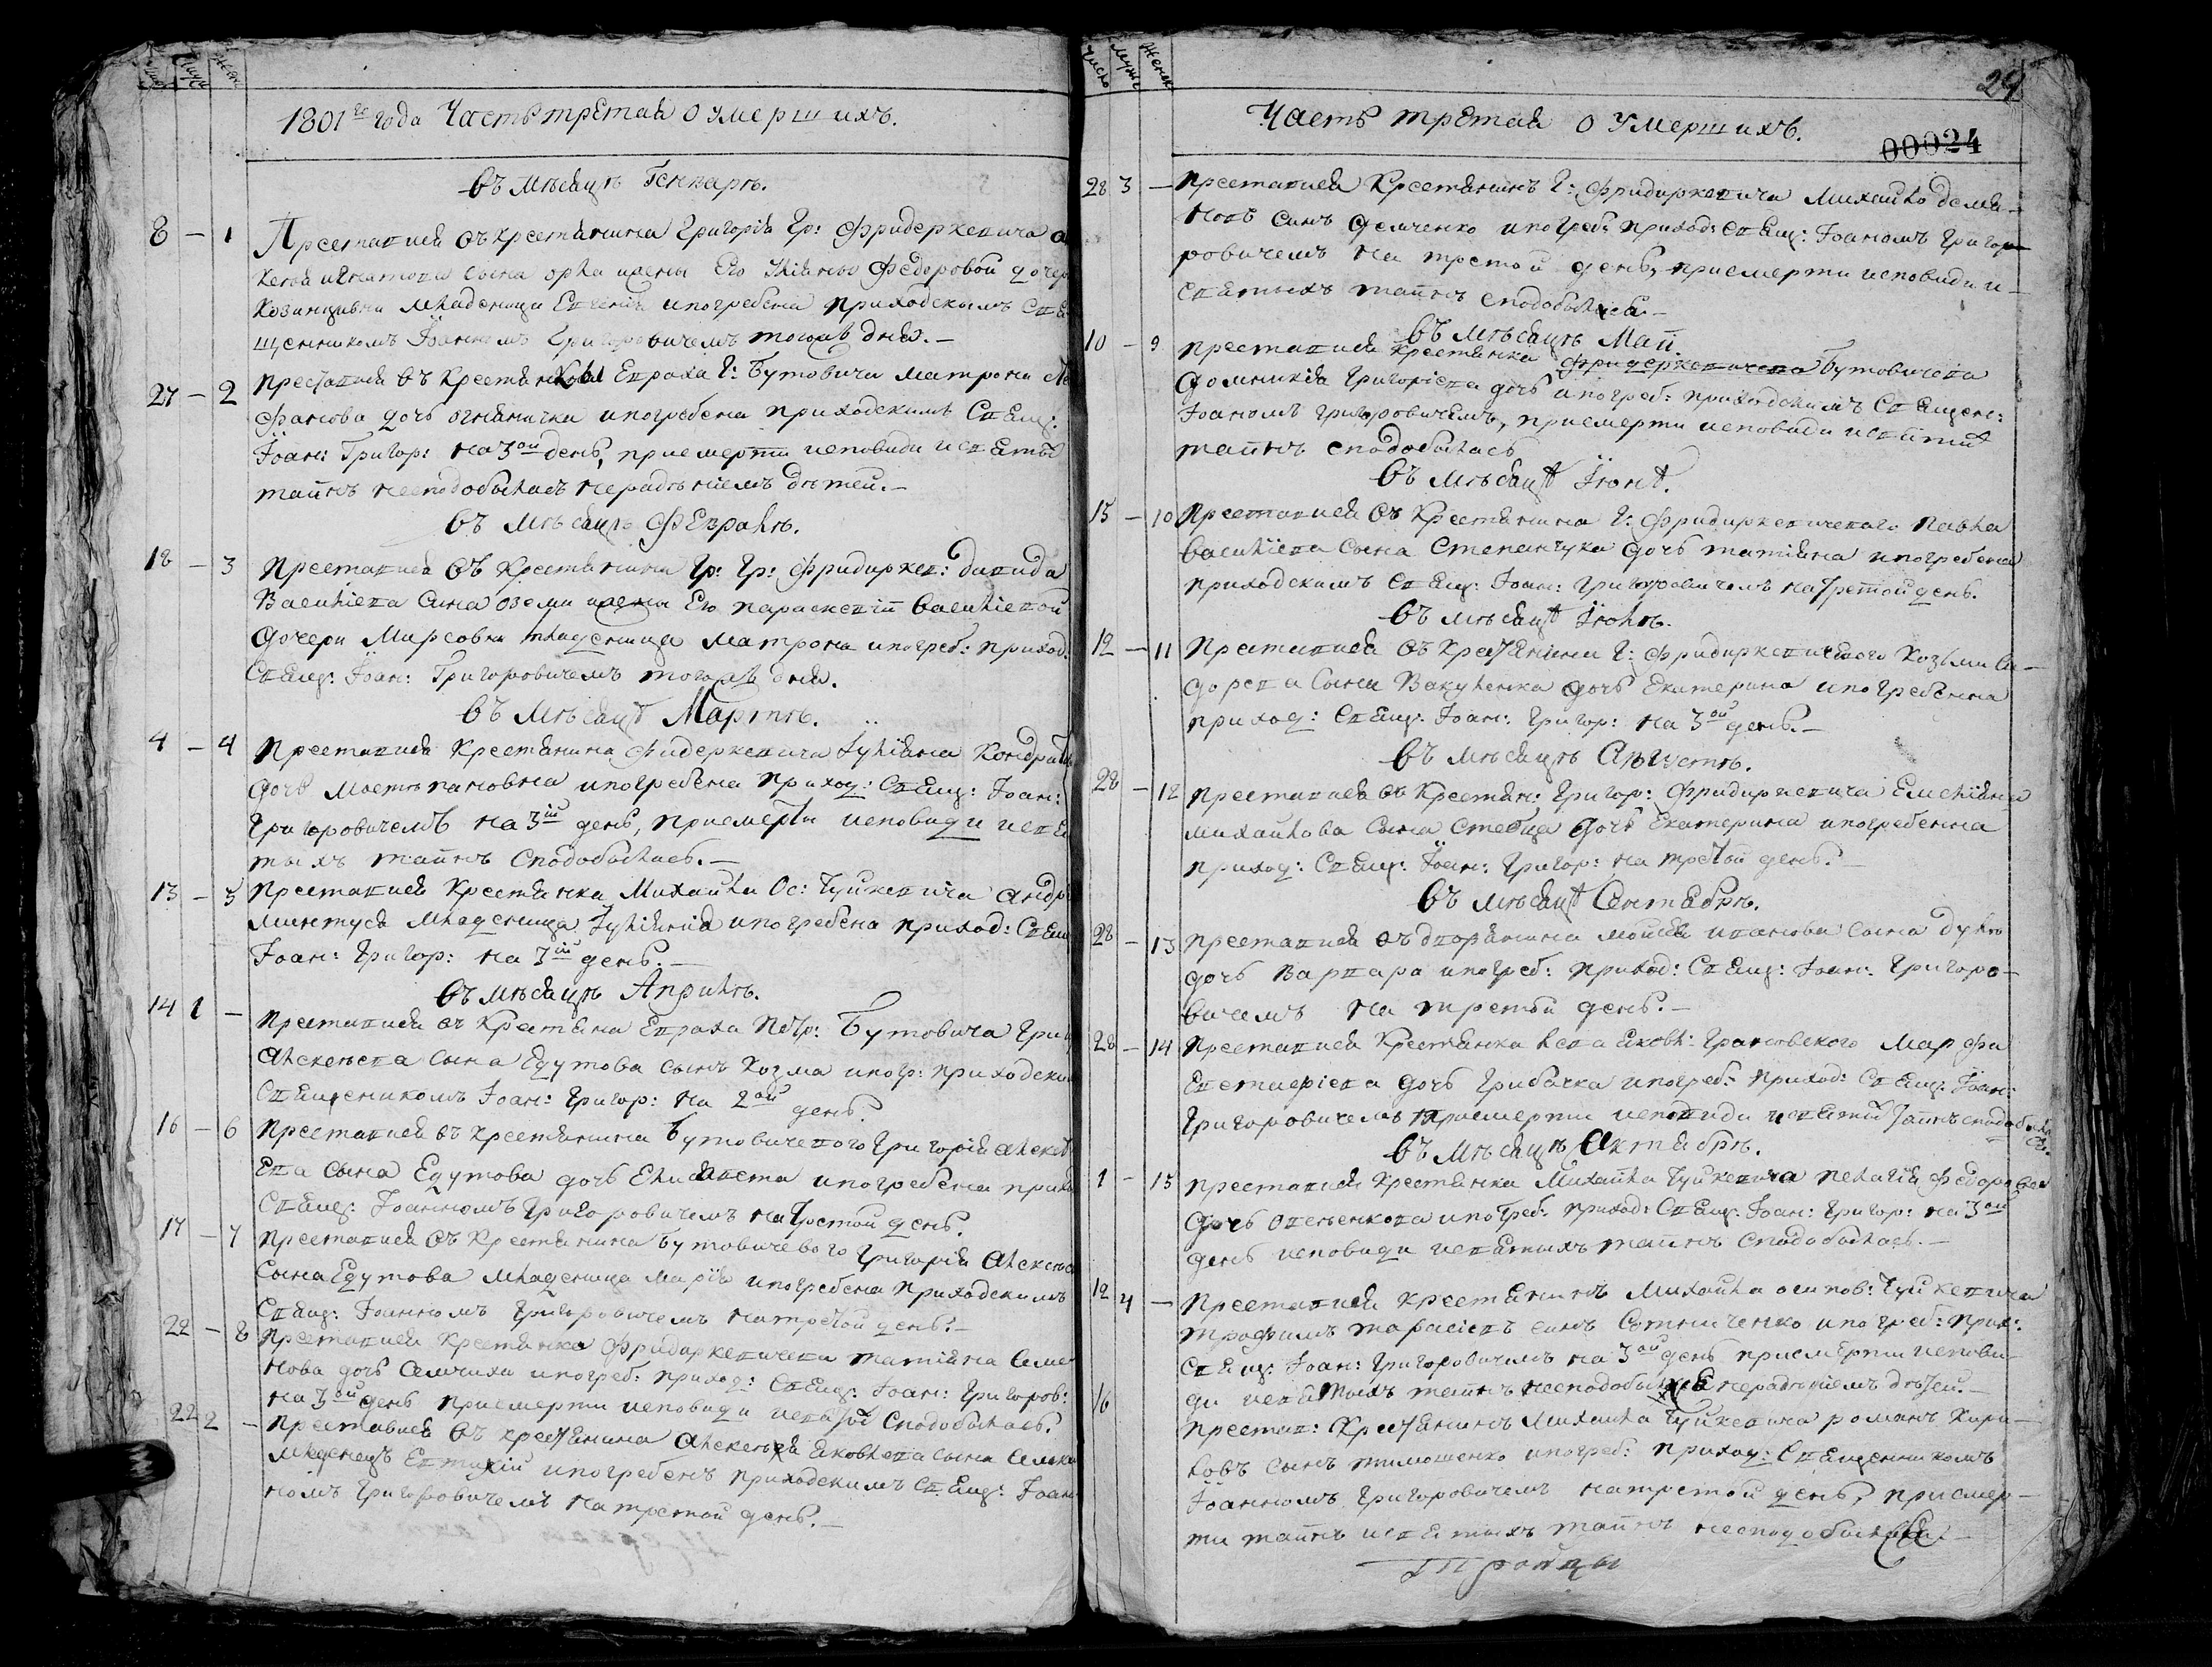 Число Мужс Женск
1801го года Часть третая о умерших.
въ мѣсяцѣ Генварѣ.
8 — 1 Преставися въ крестянина Григорія Гр: Фридеркевича
сына орла жены его Уліяны Федоровой дочери
младеница Евгенія ипогребена приходскымъ Свя
щенникомъ Іоанномъ Григоровичемъ тогожъ дня. —
27 — 2 преставися въ Крестянки Евраха Г: Бутовича матрона
фанова дочь огняничка ипогребена приходскимъ Свящ:
Іоан: Григор: на 3ой день, присмерти исповѣди исвятых
таинъ несподобилась нерадѣніемъ дѣтей. —
въ мѣсяцѣ Февралѣ.
18 — 3 преставися въ крестянина Гр: Гр: Фридиркев: давида
Василіева сына оземи жены Его параскевіи василіевой
дочери младеница матрона ипогреб: приход:
Свящ: Іоан: Григоровичемъ тогожъ дня.
въ мѣсяцѣ Мартѣ.
4 — 4 преставися Крестянина Фидеркевича Іуліяна Кондратова
дочь ипогребена приход: Свящ: Іоан:
Григоровичемъ на 3ій день, присмерти исповиди исвя
тыхъ таинъ сподобилась. —
13 — 5 преставися Крестянка Михаила Ос: Чуйкевича
младеница Іуліянія ипогребена приход: Свящ
Іоан: Григор: на 3ій день. —
въ мѣсяцѣ Априлѣ.
14 1 — преставися въ крестяина Евраха Петр: Бутовича Григор
Алексѣева сына Едутова сынъ Козма ипогр: приходски
Священикомъ Іоан: Григор: на 2ой день.
16 — 6 преставися въ крестянина Бутовичевого Григорія Алексѣ
Ева сына Едутова дочь Елисавета ипогребена прихо
Свящ: Іоанномъ Григоровичемъ на третой день.
17 — 7 преставися въ Крестянина Бутовичевого Григорія Алексѣе
сына Едутова младеница марія ипогребена приходскимъ
Свящ: Іоанномъ Григоровичемъ на третой день. —
22 — 8 преставися Крестянка Фридаркевичева татіяна Семе
нова дочь Семчиха ипогреб: приход: Свящ: Іоан: Григоров:
на 3ой день присмерти исповиди сподобилась.
22 2 — преставися въ крестянина Алексѣя Яковлева сына
младенецъ Евтихій ипогребенъ приходскимъ Свящ: Іоан
номъ Григоровичемъ на третой день. —
Число Мужс Женск
24
Часть третая о умершихъ.
00024
28 3 — преставися Крестянинъ Г: Фридиркевича Михайло демя-
новъ синъ демченко ипогреб: приход: Свящ: Іоаномъ Григор
ровичемъ на третой день, присмерти исповиди и
святыхъ таинъ сподобился —
въ мѣсяцѣ Маи.
10 — 9 преставися Крестянка Фридеркевичева Бутовичева
домникія Григоріева дочь ипогреб: приходскимъ Священ:
Іоаномъ Григоровичемъ, присмерти исповиди исвятих
таинъ сподобилась
въ мѣсяцѣ Іюнѣ.
15 — 10 преставися въ Крестянина Г: Фридиркевичевого павла
василіева сына Степанчука дочь татіяна ипогребена
приходскимъ Свящ: Іоан: Григоровичемъ на третой день.
въ мѣсяцѣ Іюлѣ.
12 — 11 преставися въ Крестянина Г: Фридиркевичевого Козьми
дорева сына Вакуленка дочь Екатерина ипогребенна
приход: Свящ: Іоан: Григор: на 3ой день. —
въ мѣсяцѣ Августѣ.
28 — 12 преставися въ Крестян: Григор: Фридиркевича Емеліяна
михайлова сына Стебца дочь Екатерина ипогребенна
приход: Свящ: Іоан: Григор: на третой день. —
въ мѣсяцѣ Сентябрѣ.
28 — 13 преставися въ дворянина моисея иванова сына
дочь Варвара ипогреб: приход: Свящ: Іоан: Григоро-
вичемъ на третой день. —
28 — 14 преставися Крестянка Лева Яковл: Грановского Марфа
Евстафіева дочь Грибачка ипогреб: приход: Свящ: Іоан:
Григоровичемъ присмерти исповиди исвятих таинъ сподобила
сь.
въ мѣсяцѣ Актябрѣ.
1 — 15 преставися Крестянка Михайла Чуйкевича пелагія Федорова
дочь ипогреб: приход: Свящ: Іоан: Григор: на 3ой
день исповиди исвятыхъ таинъ сподобилась. —
12 4 — преставися крестянинъ Михайла осипов: Чуйкевича
трофимъ тарасіевъ синъ Сотниченко ипогреб: прих:
Свящ: Іоан: Григоровичемъ на 3ой день присмерти испови-
ди исвятыхъ таинъ несподобился нерадѣніемъ дѣтей. —
16 престав: Крестянинъ Михаила Чуйкевича романъ Кири-
ловъ сынъ тимошенко ипогреб: приход: Священникомъ
Іоанномъ Григоровичемъ на третой день, присмер-
ти таинъ исвятыхъ таинъ несподобился —
Троицы